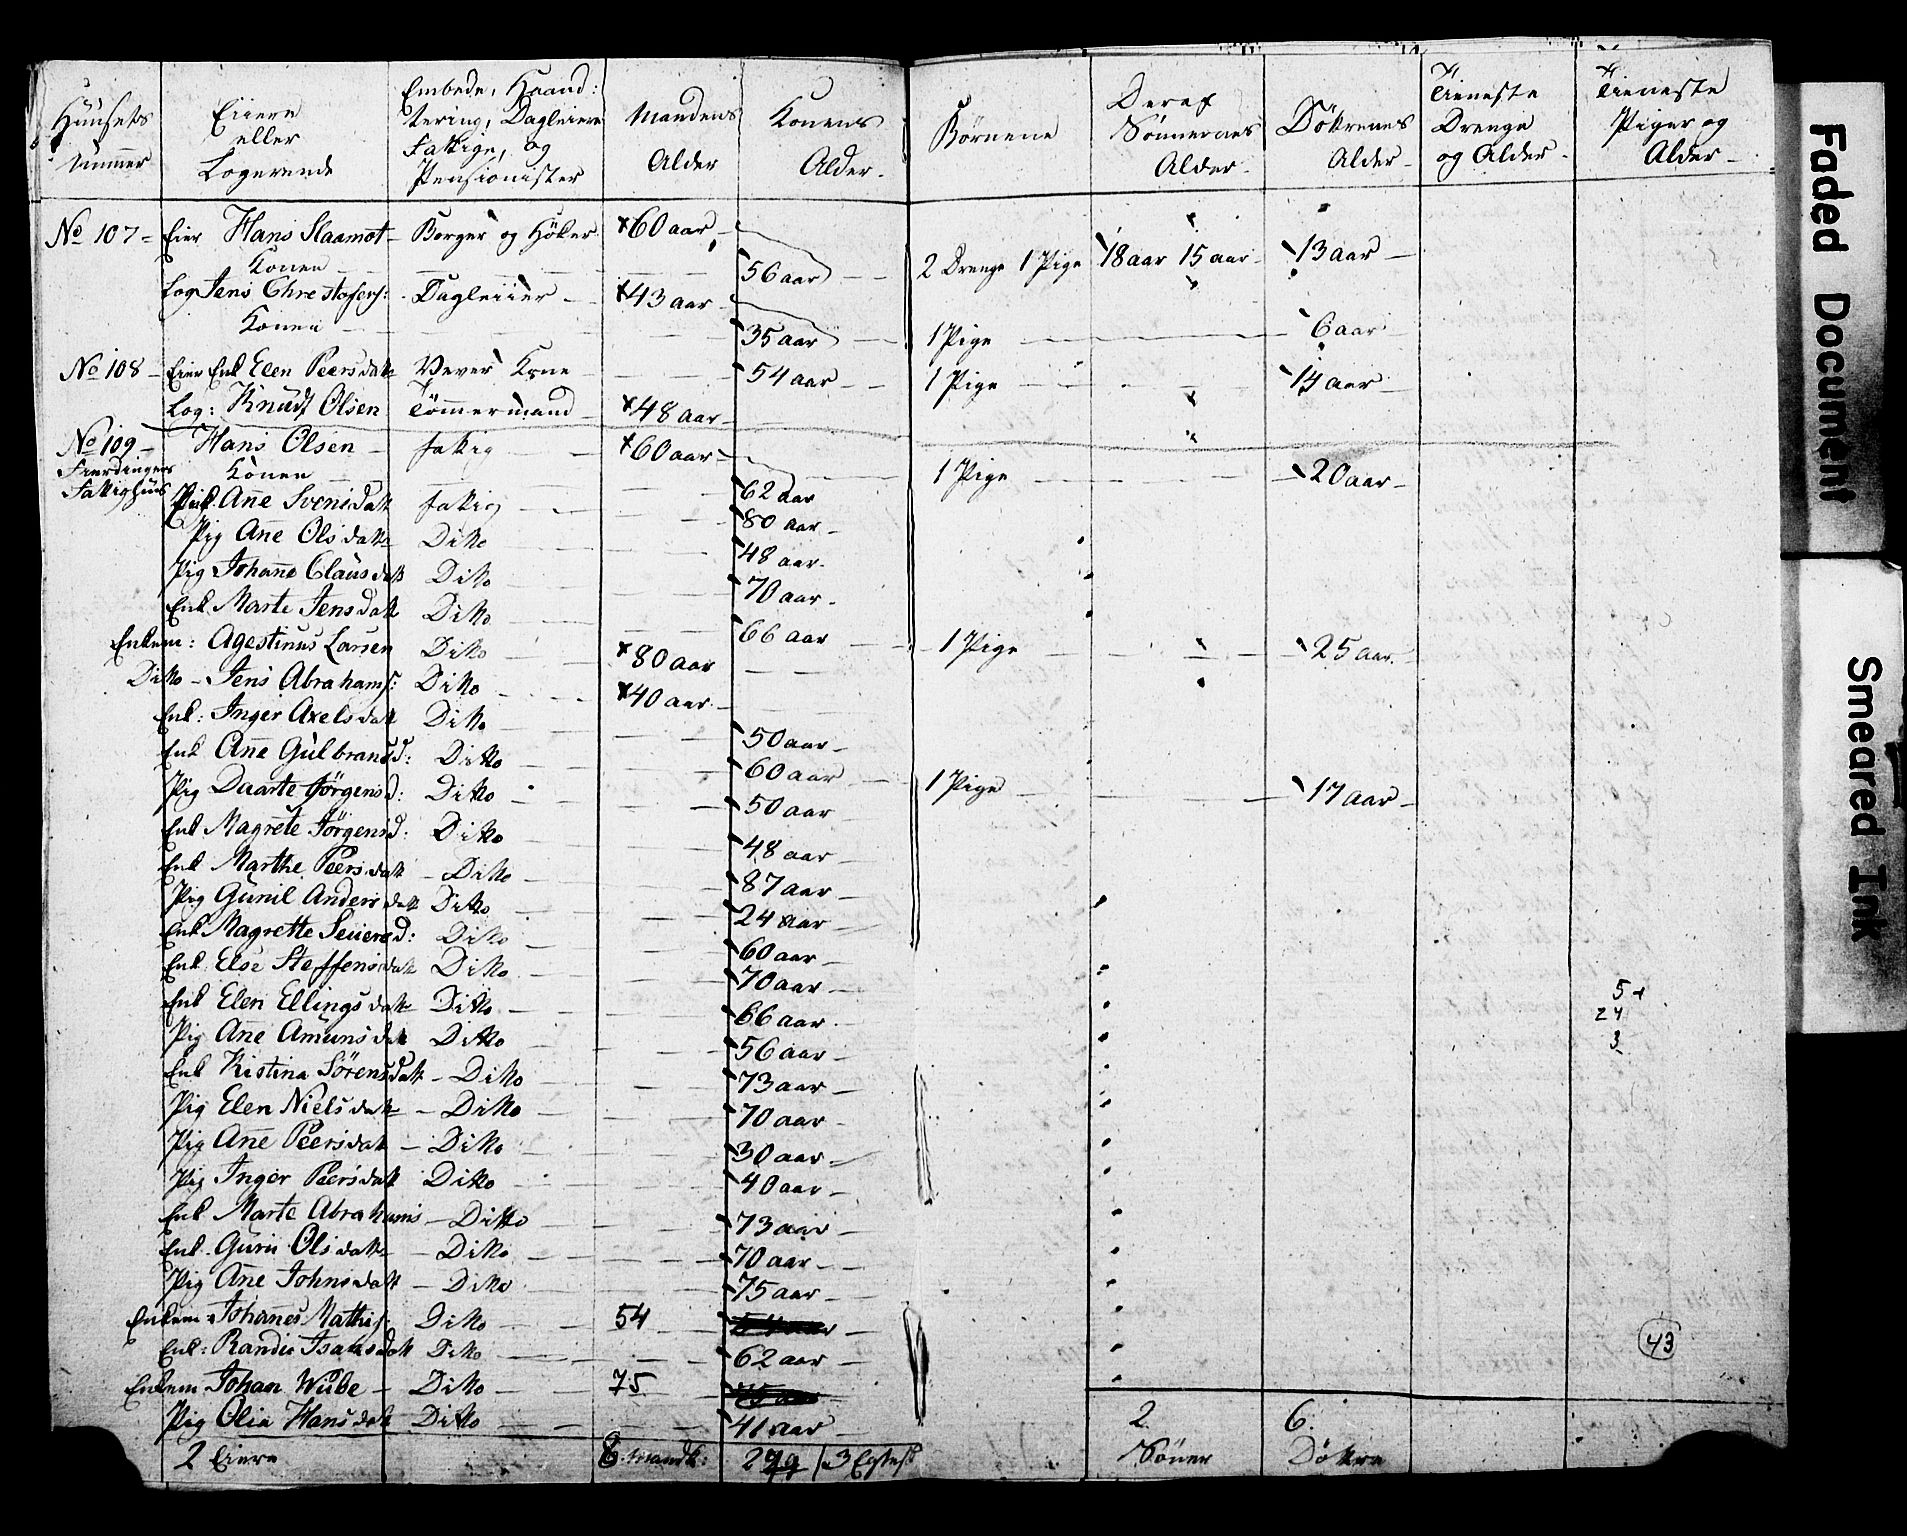 Huusets Nummer
Eiere eller Logerende
Embede, Haand: tering, Dagleiere Fattige, og Pensionister
Mandens Alder
Konens Alder.
Børnene
Deraf Sønnernes Alder.
Døttrenes Alder.
Tieneste Drenge og Alder.
Tieneste Piger og Alder
No 107 Eier Hans Slaamot Borger og Höker 60 aar
Konen 56 aar 2 Drenge 1 Pige 18 aar 15 aar 13 aar
Log Jens Christofers: Dagleiier 43 aar
Konen 35 aar 1 Pige 6 aar
No 108 Eier Enk Elen Peersdatt Vever Kone 54 aar 1 Pige 14 aar
Log: Knudt Olsen Tömmermand 48 aar
No 109 Hans Olsen fattig 60 aar
Fierdingens Konen 62 aar 1 Pige 20 aar
Fattighuus
Enk Ane Svensdatt fattig 80 aar
Pig Ane Olsdatt Ditto 48 aar
Pig Johane Clausdatt Ditto 70 aar
Enk Marte Jensdatt Ditto 66 aar
Enkem: Agestinus Larsen Ditto 80 aar 1 Pige 25 aar
Ditto Jens Abrahams: Ditto 40 aar
Enk: Inger Axelsdatt Ditto 50 aar
Enk Ane Gulbransd: Ditto 60 aar 1 Pige 17 aar
Pig Daarte Jörgensd: Ditto 50 aar
Enk Magrete Jörgensd: Ditto 48 aar
Enk Marthe Peersdatt Ditto 87 aar
Pig Gunil Andersdatt Ditto 24 aar
Enk Magrette Seuersd: Ditto 60 aar
Enk Else Steffensdatt Ditto 70 aar
Enk Elen Ellingsdatt Ditto 66 aar
Pig Ane Amunsdatt Ditto 56 aar
Enk Kistina Sörensdatt Ditto 73 aar
Pig Elen Nielsdatt Ditto 70 aar
Pig Ane Peersdatt Ditto 30 aar
Pig Inger Peersdatt Ditto 40 aar
Enk Marte Abrahams Ditto 73 aar
Enk Guru Olsdatt Ditto 70 aar
Pig Ane Johnsdatt Ditto 75 aar
Enkem: Johanes Mathis: Ditto 54
Enk: Randie Isaksdatt Ditto 62 aar
Enkem Johan Wibe Ditto 75
Pig Olia Hansdatt Ditto 41 aar
2 Eiere 8 Mandk: 3
2 Söner
6 Döttre
5
24
3
43
Faded Document
Smeared Ink